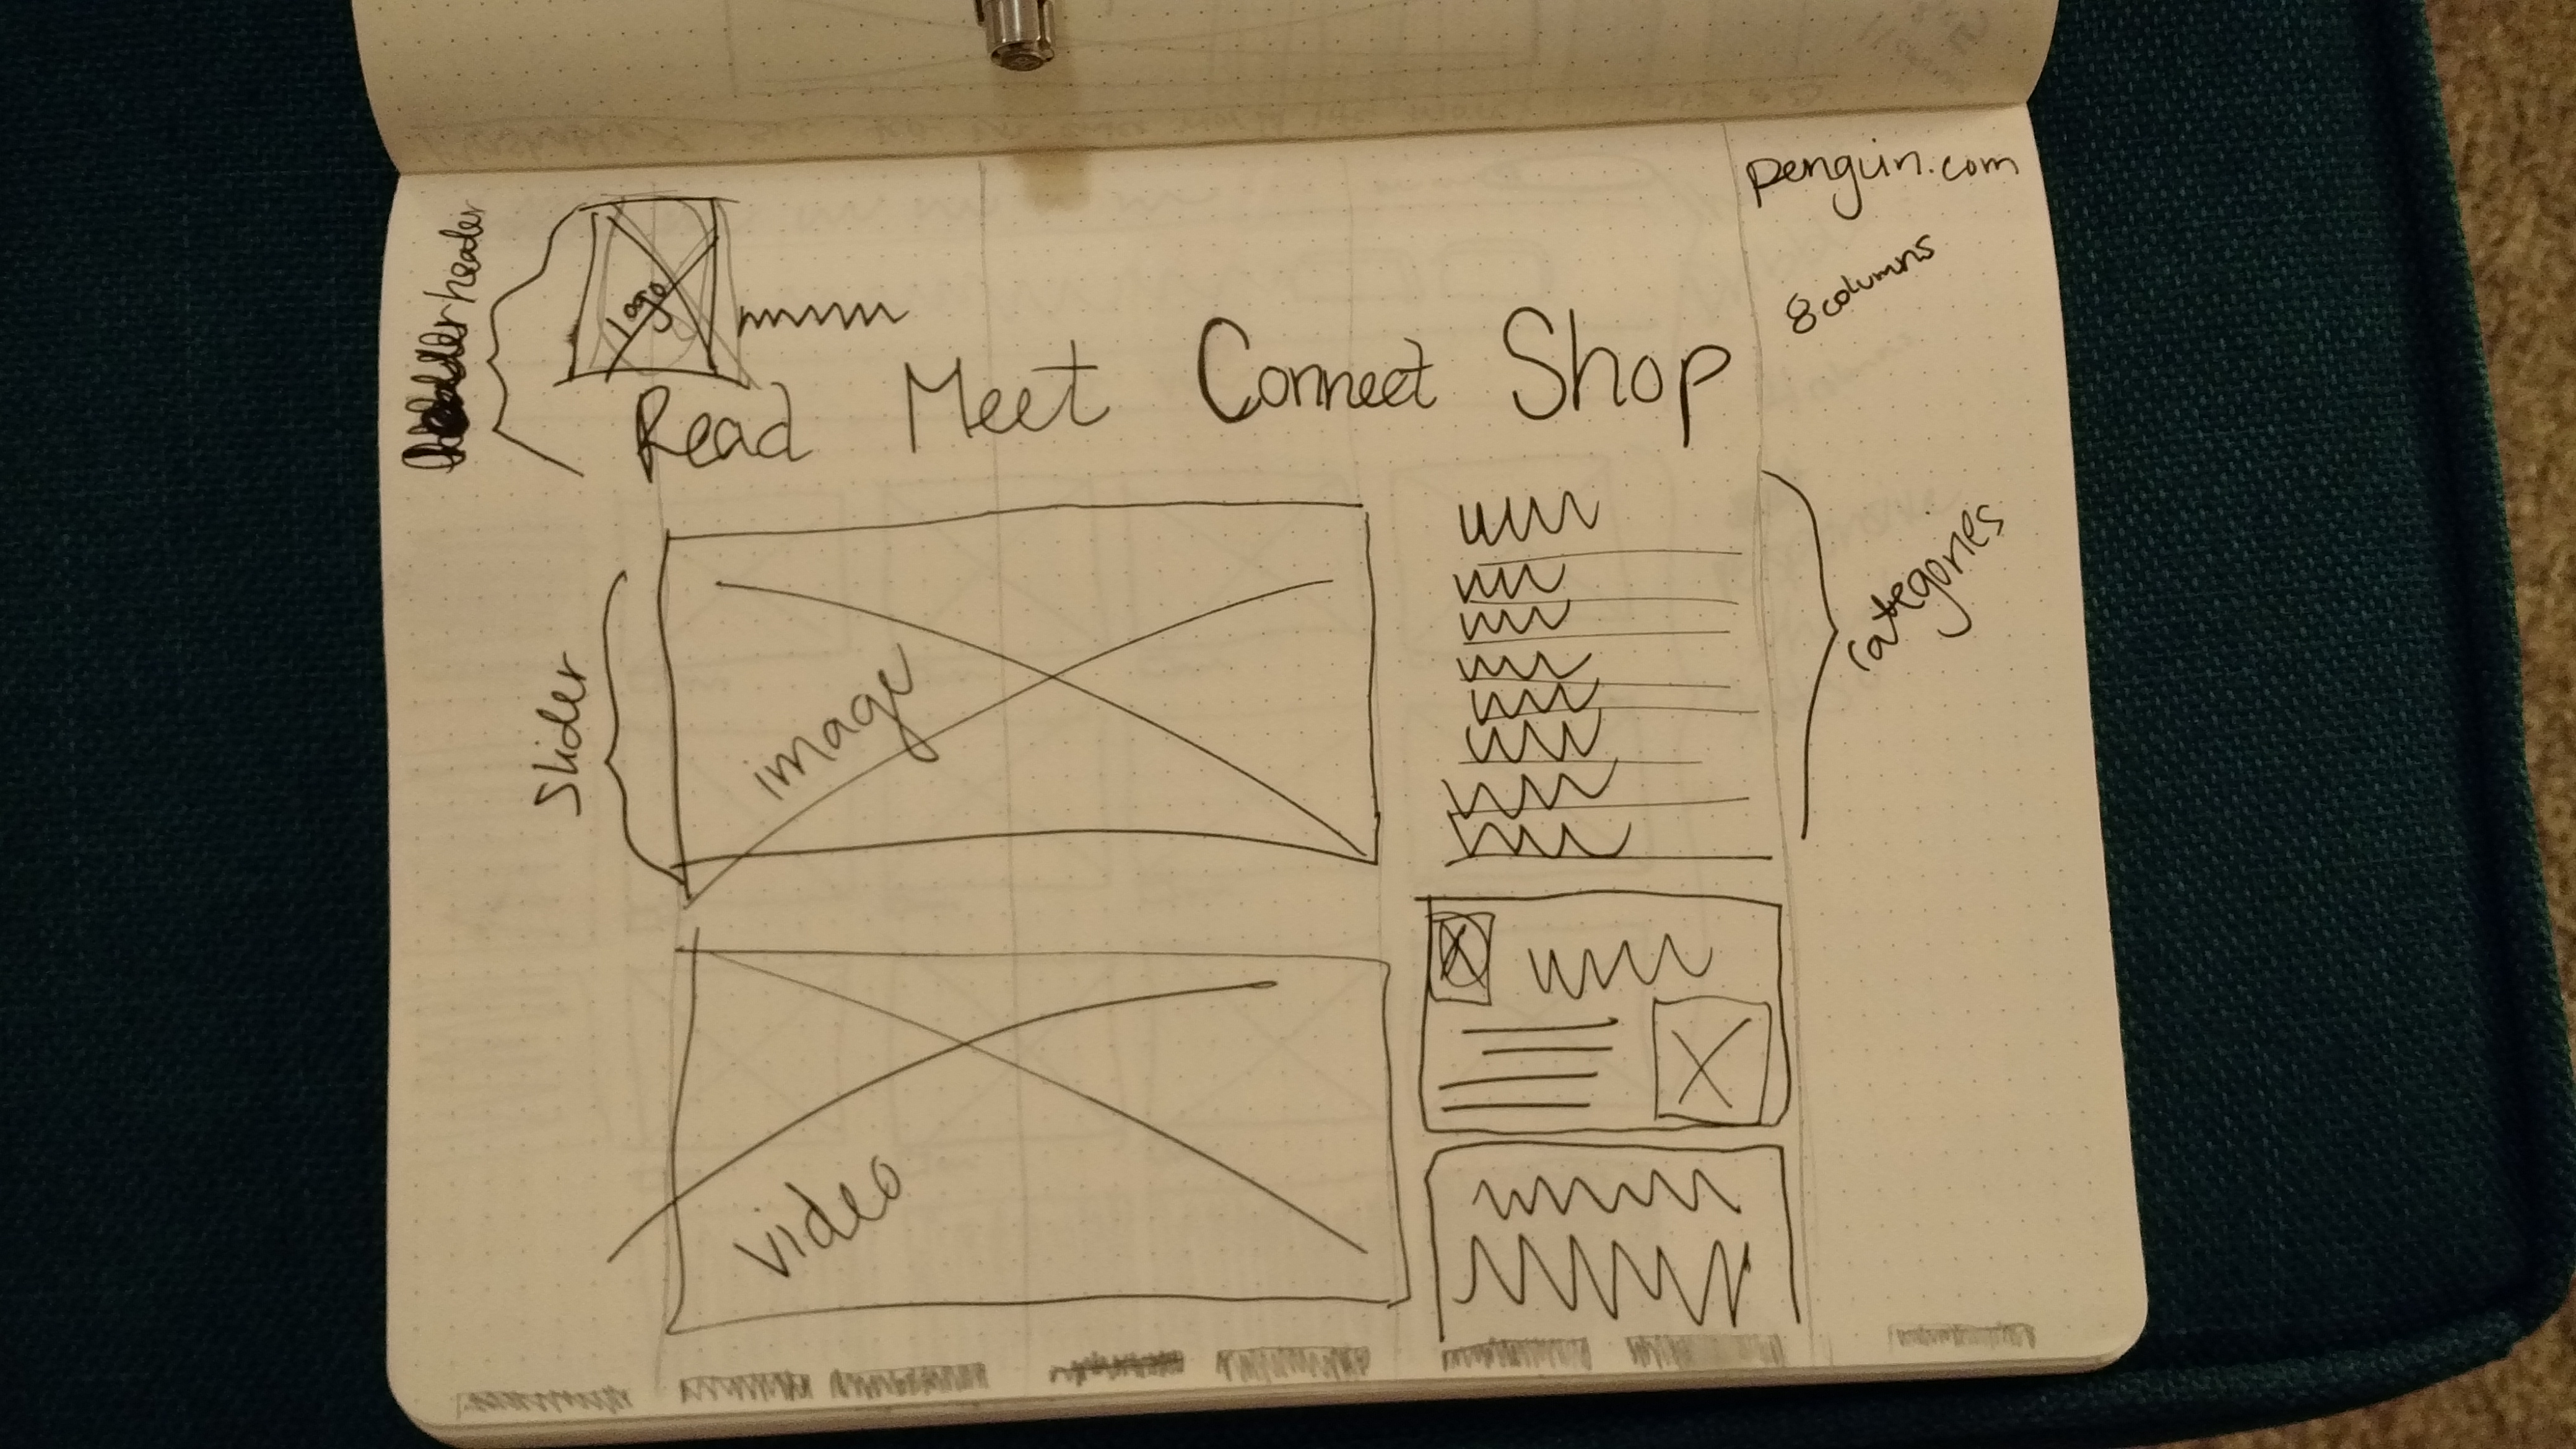 penguin.com
8 columns
header
logo
Read Meet Connect Shop
Slider
image
categories
video